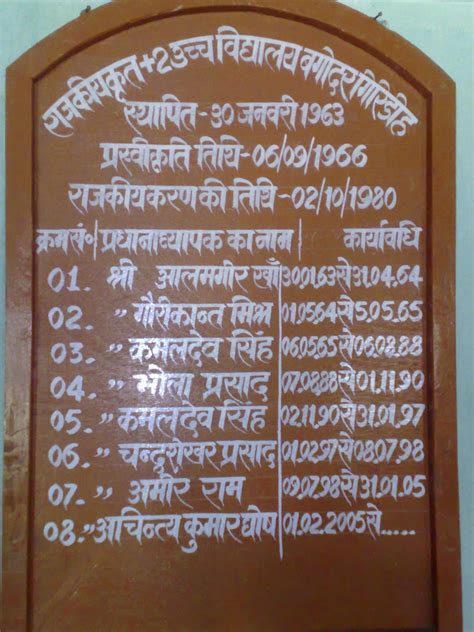 राजकीयकृत +2 उच्च विद्यालय बगोदर गिरिडीह
स्थापित - 30 जनवरी 1963
प्रस्वीकृति तिथि - 06/09/1966
राजकीयकरण की तिथि - 02/10/1980
क्रम सं० प्रधानाध्यापक का नाम कार्यावधि
01. श्री आलमगीर खाँ 30.01.63 से 31.04.64
02. " गौरीकान्त मिश्र 01.05.64 से 5.05.65
03. " कमलदेव सिंह 06.05.65 से 06.08.88
04. " भोला प्रसाद 07.08.88 से 01.11.90
05. " कमलदेव सिंह 02.11.90 से 31.01.97
06. " चन्द्रशेखर प्रसाद 01.02.97 से 08.07.98
07. " अमीर राम 09.07.98 से 31.01.05
08. " अचिन्त्य कुमार घोष 01.02.2005 से.....